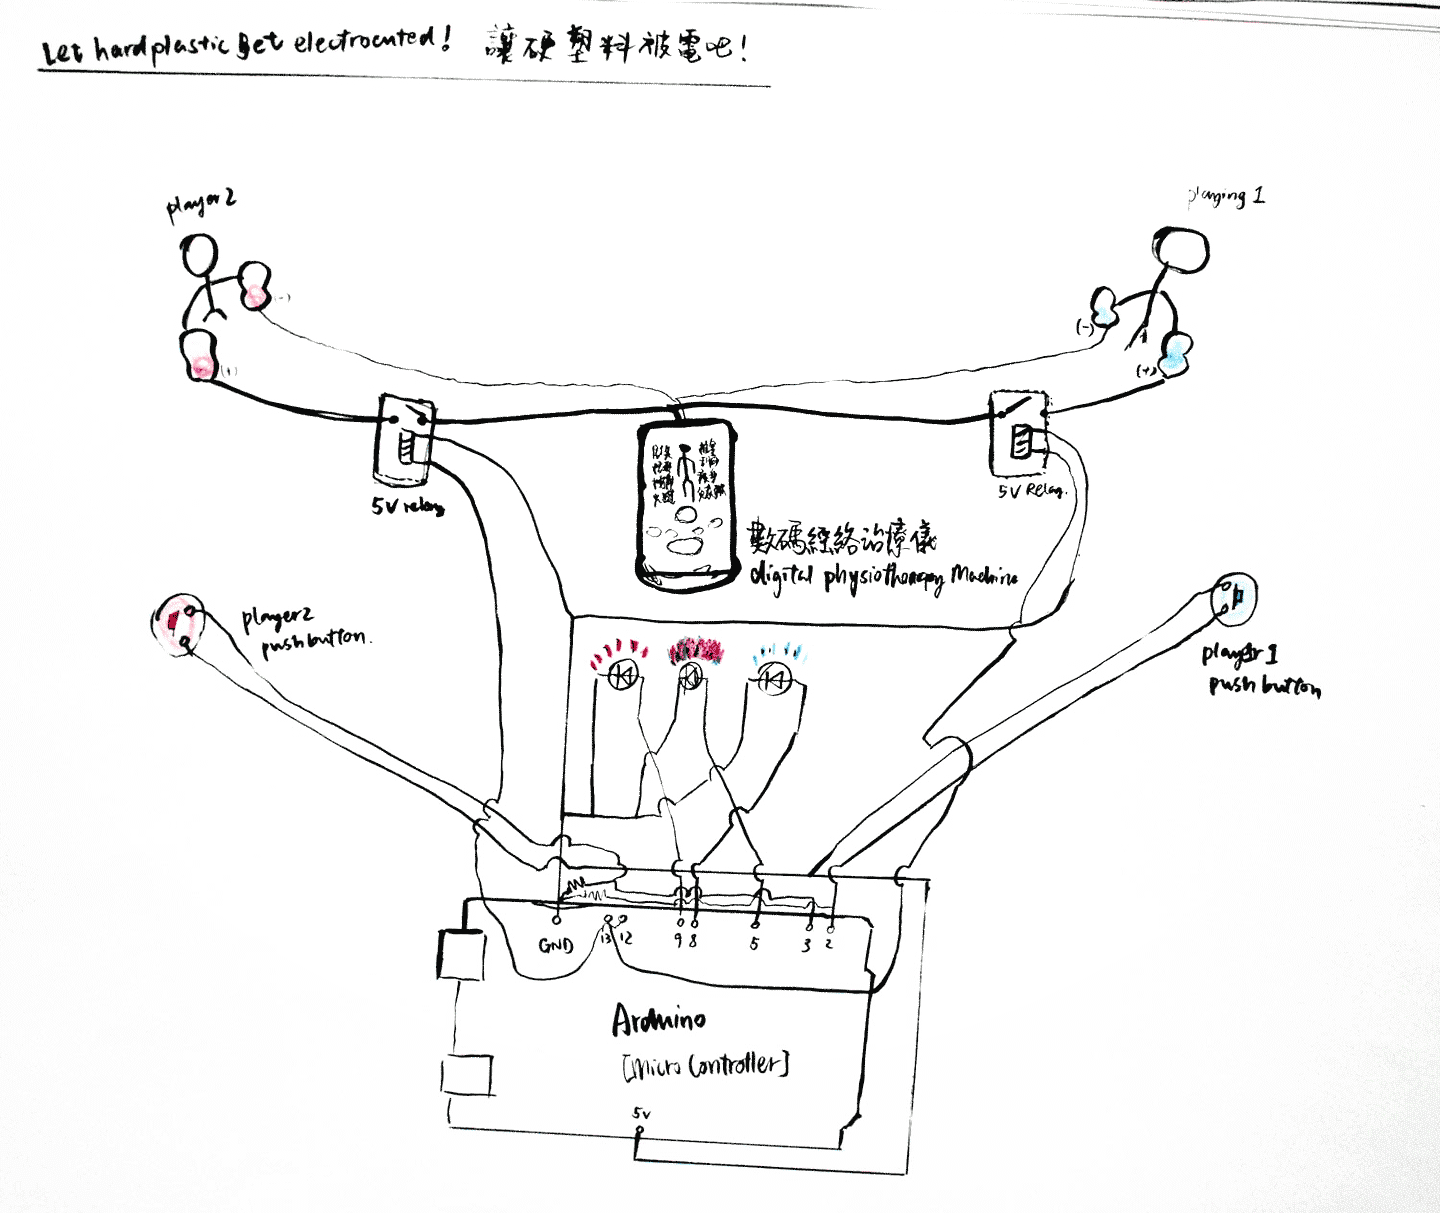 Let hardplastic get electrocuted! 讓硬塑料被電吧!
player2
playing 1
(-)
(-)
(+)
(+)
5V relay
5V Relay.
數碼經絡治療儀
digital physiotherapy Machine
player2
pushbutton.
player 1
push button
GND
13 12
9 8
5
3
2
Arduino
[Micro Controller]
5V